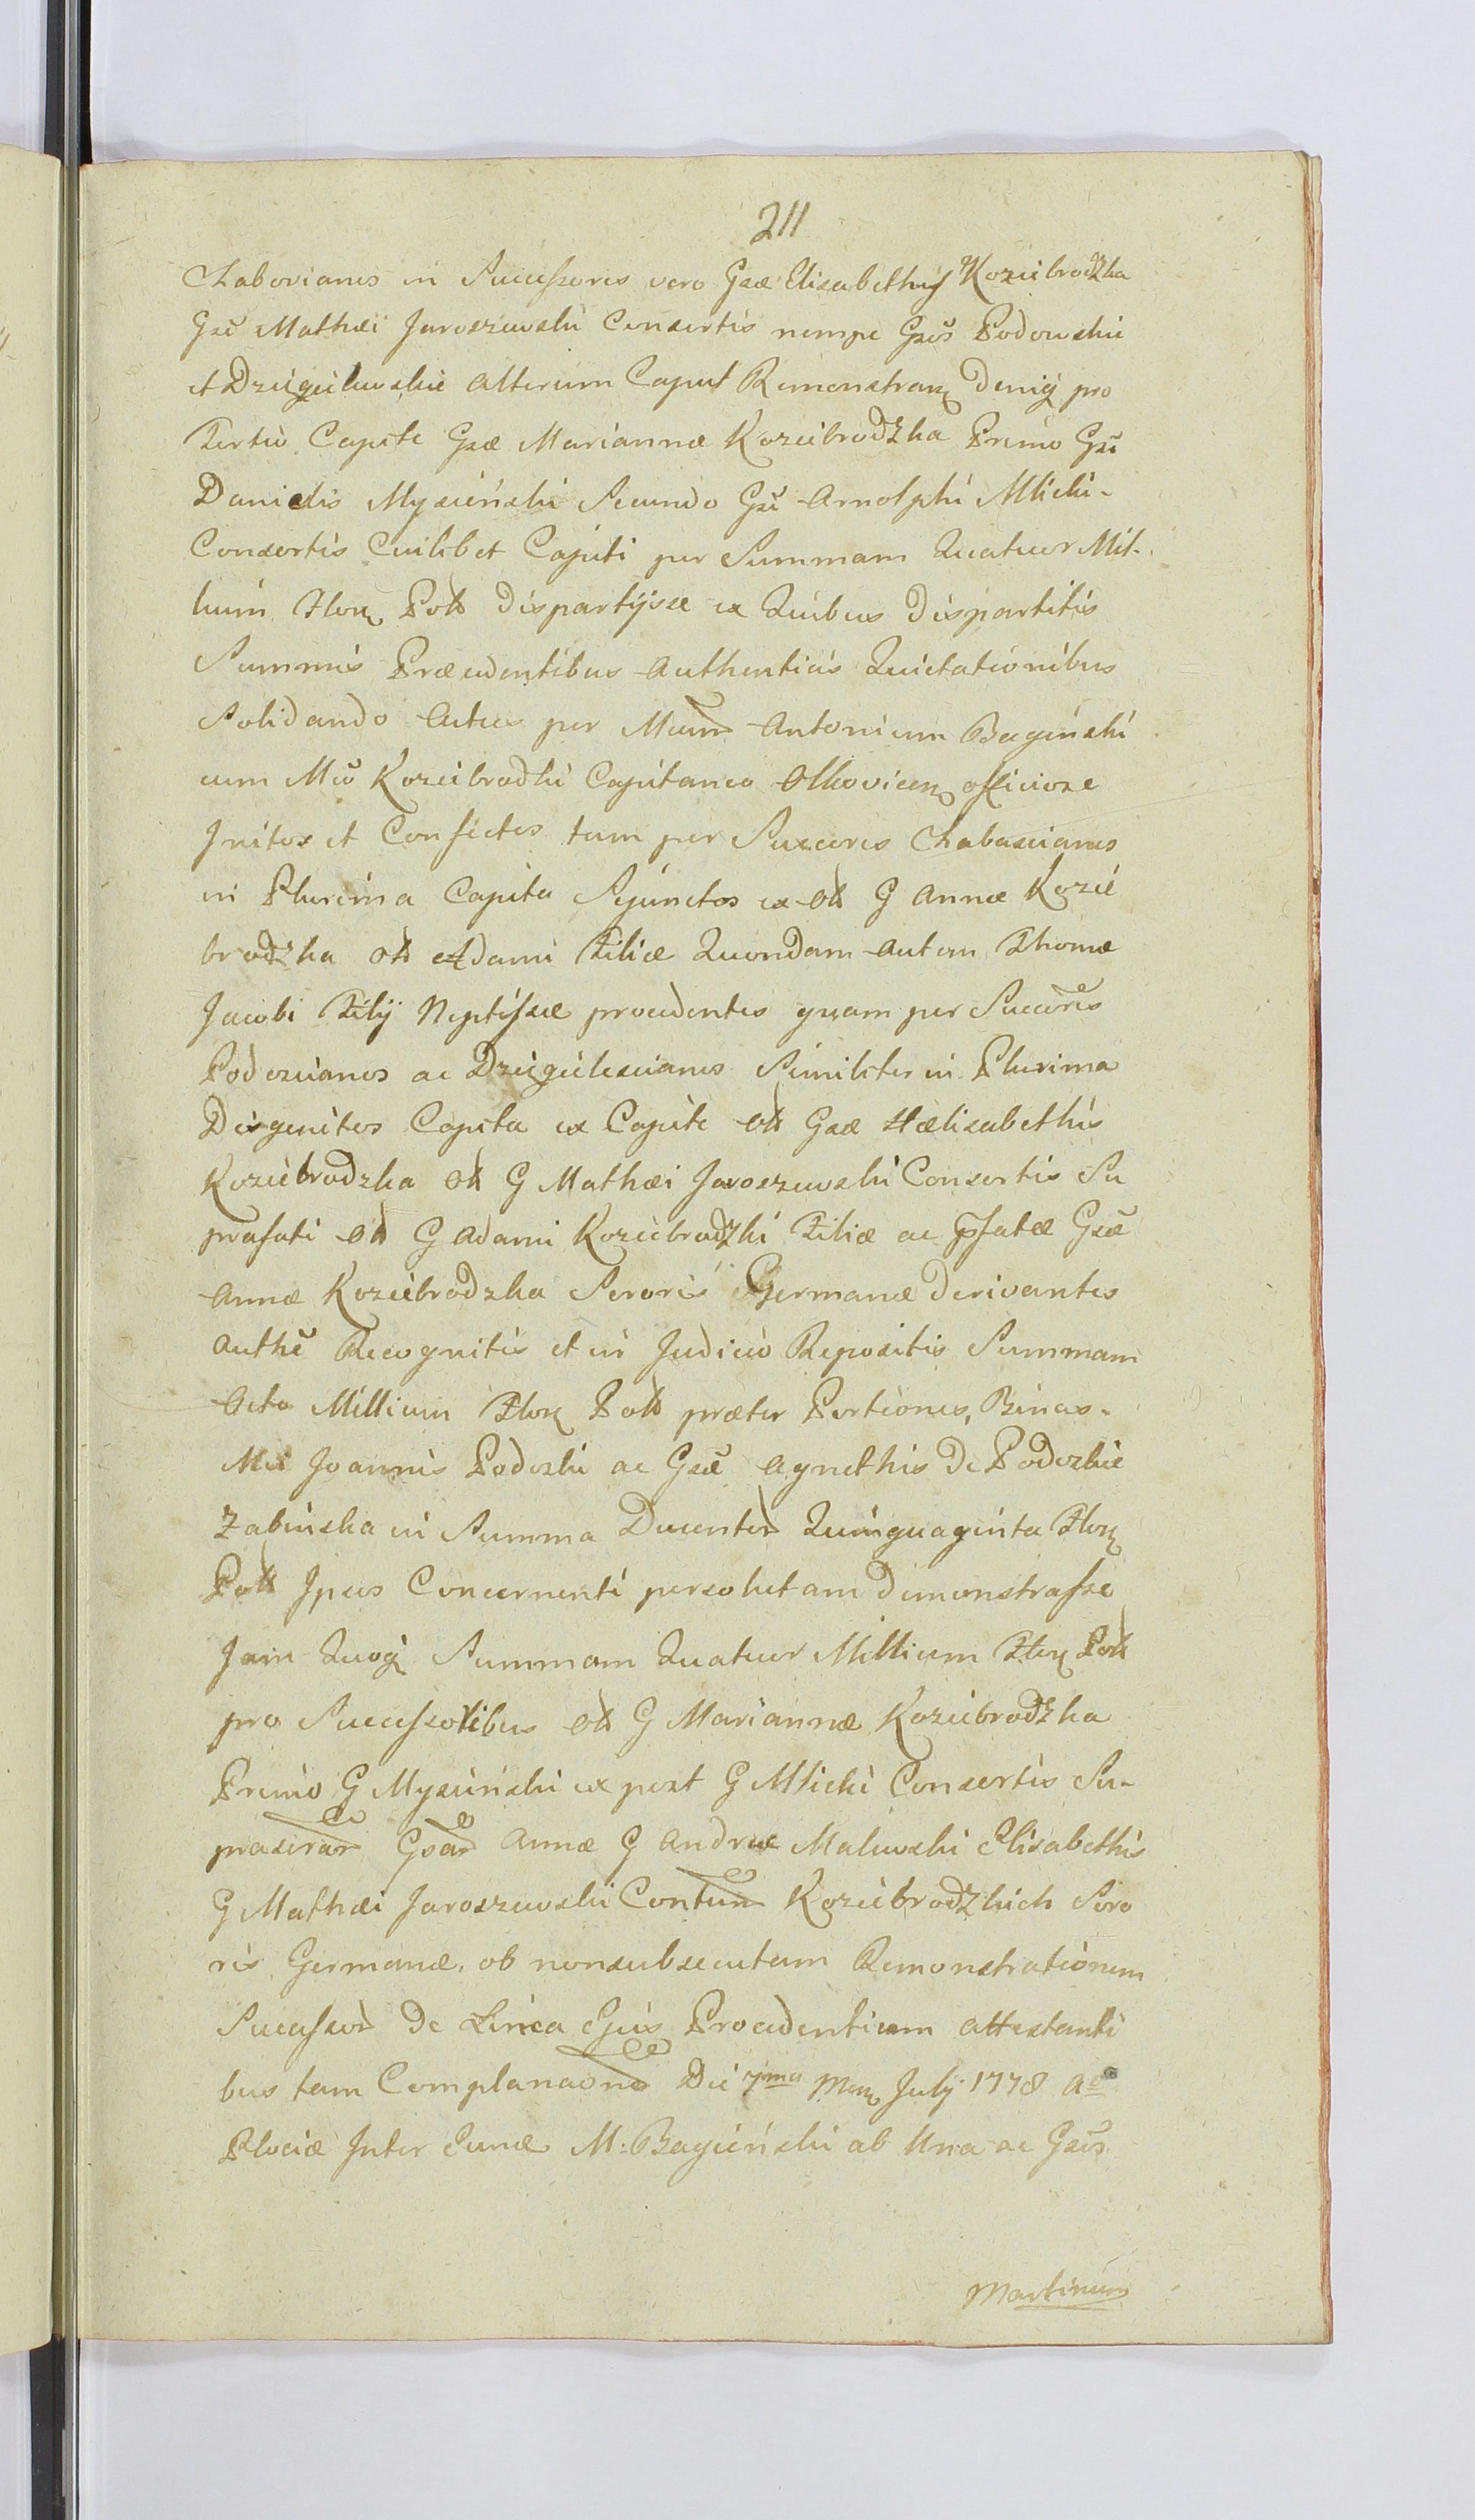 211
Chabovianos in Successores vero Gsæ Elisabethis Kozicibrodzka
Gsi Mathæi Jaroszewski Consortis nempe Gsos Podowskie
et Dzięgielewskie Alterum Caput Remonstran Deniq pro
Tertio Capite Gsæ Mariannæ Koziebrodzka Primo Gsi
Danielis Mysieński Secundo Gsi Arnolphi Mlicki
Consortis Cuilibet Capiti per Summam Quatuor Mil-
lium Flor Poll dispartijsse ex Quibus dispartitis
Summis Præcedentibus Authenticis Quietationibus
Solidando Actus per Mcum Antonium Bagiński
cum Mco Koziebrodki Capitaneo Olkovicen officiose
Initos et Confectos tam per Succores Chabascianos
in Plurima Capita Sejunctos ex olt G Annæ Kozie
brodzka olt Adami Filiæ Quondam Autem Thomæ
Jacobi Filij Neptissæ procedentes quam per Succores
Podoscianos ac Dzięgielescianos Similiter in Plurima
Disgenitos Capita ex Capite olt Gsæ Hælisabethis
Koziebrodzka olt G Mathæi Jaroszewski Consortis Su
prafati olt G Adami Koziebrodzki Filiæ ac Pfatæ Gsæ
Annæ Koziebrodzka Sororis Germanæ Derivantes
Authe Recognitis et in Judicio Repositis Summam
Octo Millium Flor Poll præter Portiones, Binas
Mci Joannis Podoski ac Gsæ Agnethis De Podoskie
Zabinska in Summa Ducentor Quinquaginta Flor
Poll Ipsos Concernenti persolutam Demonstrasse
Jam Quoq Summam Quatuor Millium Flor Poll
pro Successoribus olt G Mariannæ Koziebrodzka
Primo G Mysieński ex post G Mlicki Consortis Su-
prascrar Gsar Annæ G Andreæ Malewski Elisabethis
G Mathæi Jaroszewski Contum Koziebrodzkich Soro
ris Germanæ, ob nonsubsecutam Remonstrationem
Successor De Linea Ejus Procedentium attestanti
bus tam Complanaone Die 7ma Men July 1778 Ao
Plociæ Inter Eunde M: Bagieński ab Una ac Gsos
Martinum